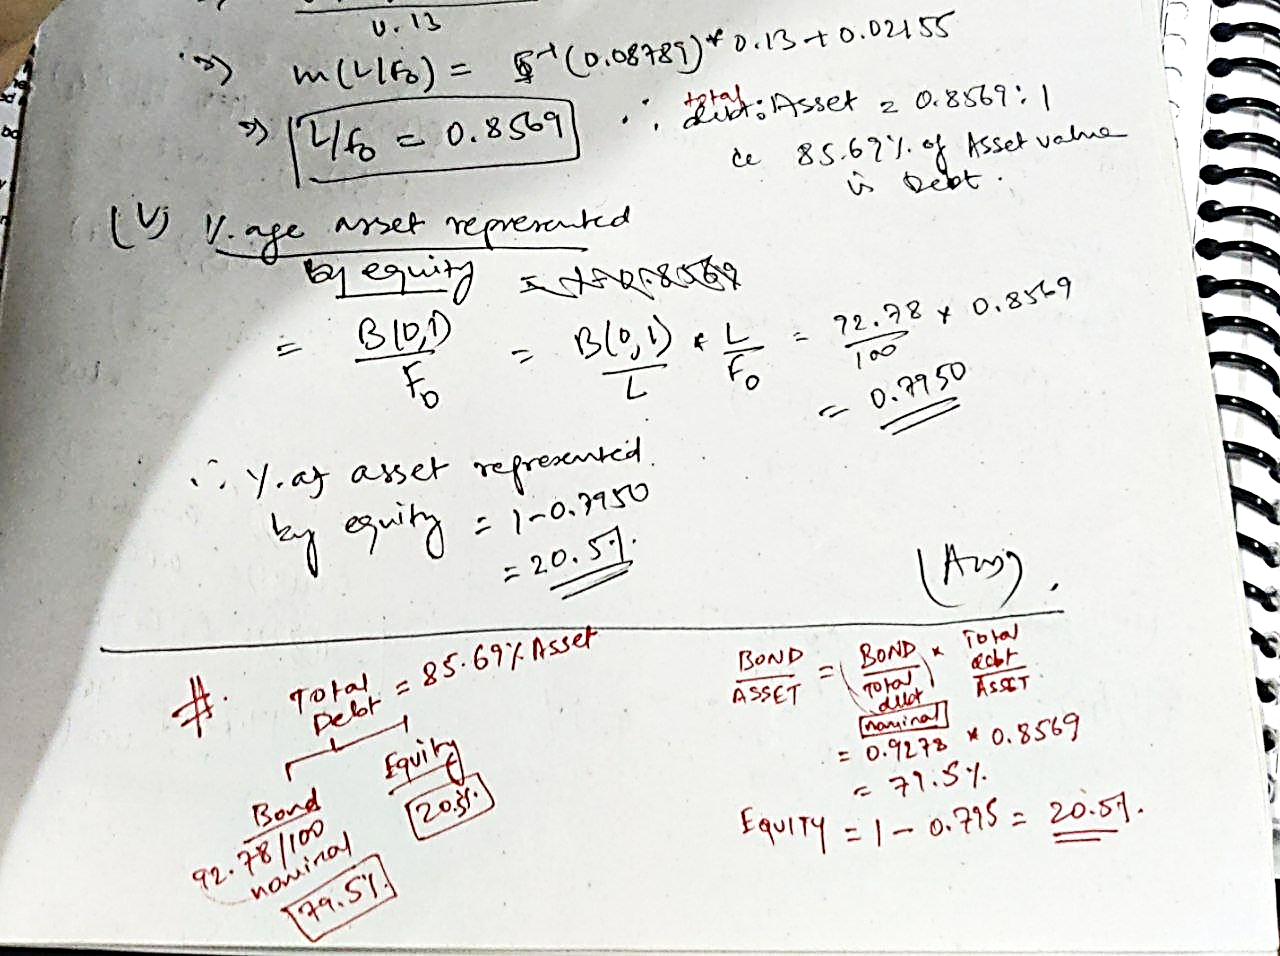 0.13
⇒) m(L/F₀) = Φ⁻¹(0.08789)* 0.13 + 0.02155
⇒) L/F₀ = 0.8569 ∴ total debt : Asset = 0.8569 : 1
ie 85.69% of Asset value
is Debt.
(V) %.age asset represented
by equity
= B(0,1)/F₀ = B(0,1)/L * L/F₀ = 92.78/100 * 0.8569
= 0.7950
∴ %.of asset represented
by equity = 1-0.7950
= 20.5%.
(Ans).
#. Total Debt = 85.69% Asset
Bond
92.78/100
nominal
79.5%.
Equity
20.5%.
BOND/ASSET = (BOND/Total debt) * Total debt/ASSET
nominal
= 0.9278 * 0.8569
= 79.5%.
EQUITY = 1 - 0.795 = 20.5%.